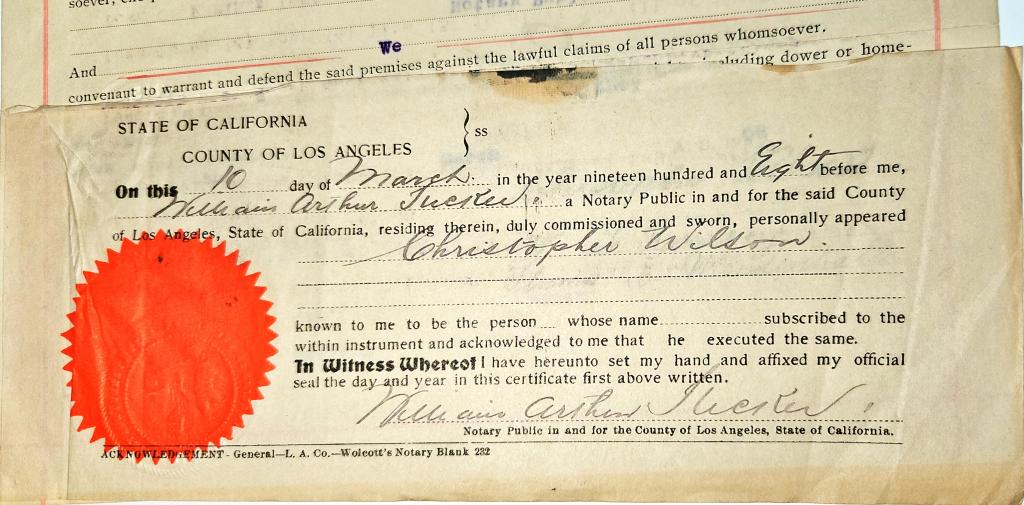 soever,
And We
convenant to warrant and defend the said premises against the lawful claims of all persons whomsoever.
including dower or home-
STATE OF CALIFORNIA
COUNTY OF LOS ANGELES } ss
On this 10 day of March. in the year nineteen hundred and Eight before me,
William Arthur Tucker. a Notary Public in and for the said County
of Los Angeles, State of California, residing therein, duly commissioned and sworn, personally appeared
Christopher Wilson.
known to me to be the person whose name subscribed to the
within instrument and acknowledged to me that he executed the same.
In Witness Whereof I have hereunto set my hand and affixed my official
seal the day and year in this certificate first above written.
William Arthur Tucker.
Notary Public in and for the County of Los Angeles, State of California.
ACKNOWLEDGEMENT - General—L. A. Co.—Wolcott's Notary Blank 232